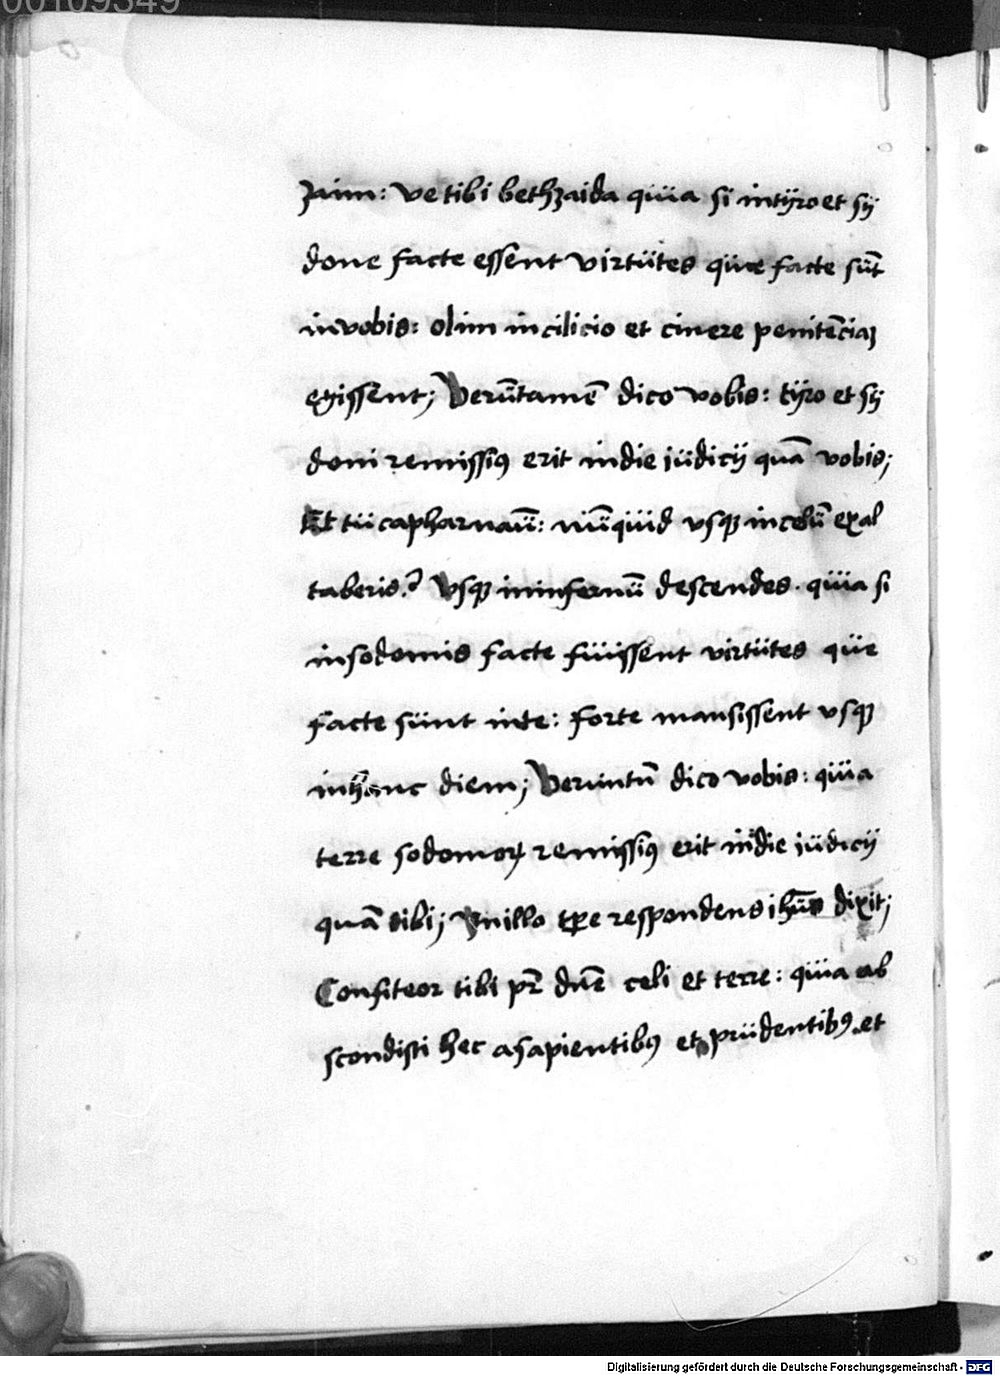 00109349
zaim: ve tibi bethzaida quia si in tÿro et sÿ
done facte essent virtutes que facte sūt
in vobis: olim in cilicio et cinere penitēciaꝫ
egissent; Verūtamē dico vobis: tÿro et sÿ
doni remissiꝰ erit in die iudicij quā vobis;
Et tu capharnaū: nūquid vsqꝫ in celū exal
taberis? Vsqꝫ in infernū descendes. quia si
in sodomis facte fuissent virtutes que
facte sunt in te: forte mansissent vsqꝫ
in hanc diem; Veruntn̄ dico vobis: quia
terre sodomoꝝ remissiꝰ erit in die iudicij
quā tibi; In illo tꝑe respondens ihūs dixit;
Confiteor tibi pr̄ dn̄e celi et terre: quia ab
scondisti hec a sapientibꝰ et prudentibꝰ. et
Digitalisierung gefördert durch die Deutsche Forschungsgemeinschaft - DFG